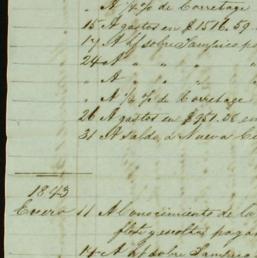 " A ½% de Corretage
15 A gastos en $1516.59
17 A L/ sobre Tampico
24 A " " "
" A " " "
" A ½% de Corretage
26 A gastos en $951.
31 A Saldo, a Nueva
1843
Enero 11 A Conocimiento de la
flete y escoltas
14 A L/ sobre Tampico